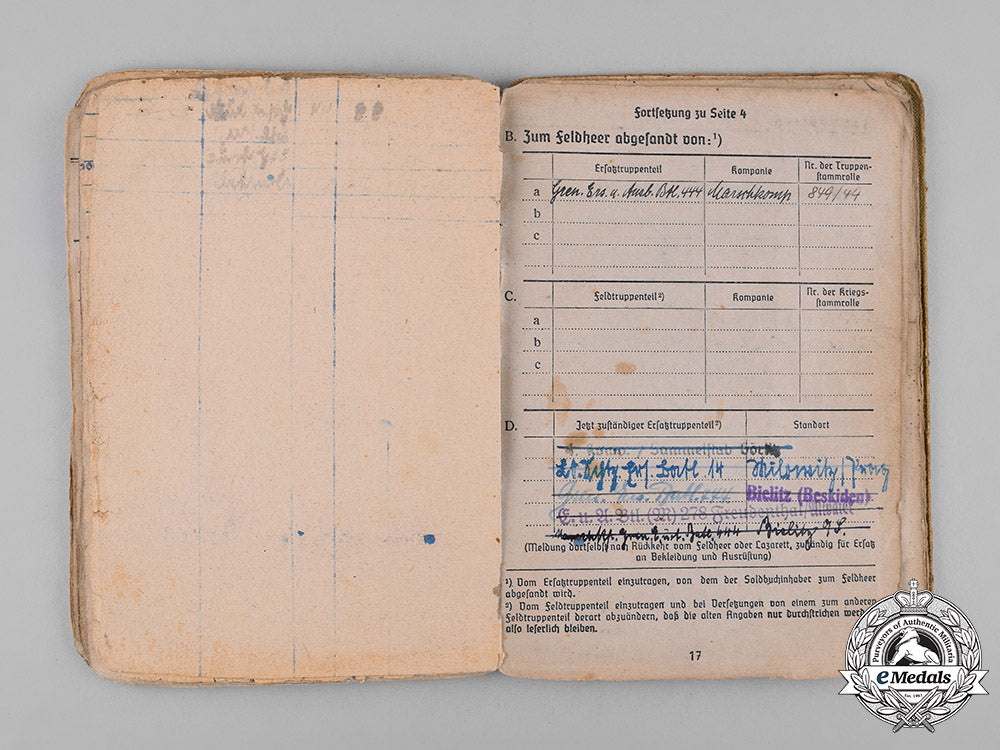 Fortsetzung zu Seite 4
B. Zum Feldheer abgesandt von:¹)
Ersatztruppenteil Kompanie Nr. der Truppen-
stammrolle
a Gren. Ers. u. Ausb. Btl. 444 Marschkomp 849/44
b
c
C. Feldtruppenteil²) Kompanie Nr. der Kriegs-
stammrolle
a
b
c
D. Jetzt zuständiger Ersatztruppenteil²) Standort
Sammelstab
Ers. Batl. 14 Milowitz/Prag
Gren. Ers. Batl. 444 Bielitz (Beskiden)
E. u. A. Btl. (M) 278 Freudenthal
Gren. Batl. 444 Bielitz
(Meldung dortselbst nach Rückkehr vom Feldheer oder Lazarett, zuständig für Ersatz
an Bekleidung und Ausrüstung)
¹) Vom Ersatztruppenteil einzutragen, von dem der Soldbuchinhaber zum Feldheer
abgesandt wird.
²) Vom Feldtruppenteil einzutragen und bei Versetzungen von einem zum anderen
Feldtruppenteil derart abzuändern, daß die alten Angaben nur durchstrichen werden,
also leserlich bleiben.
17
Purveyors of Authentic Militaria
eMedals
Est. 1967